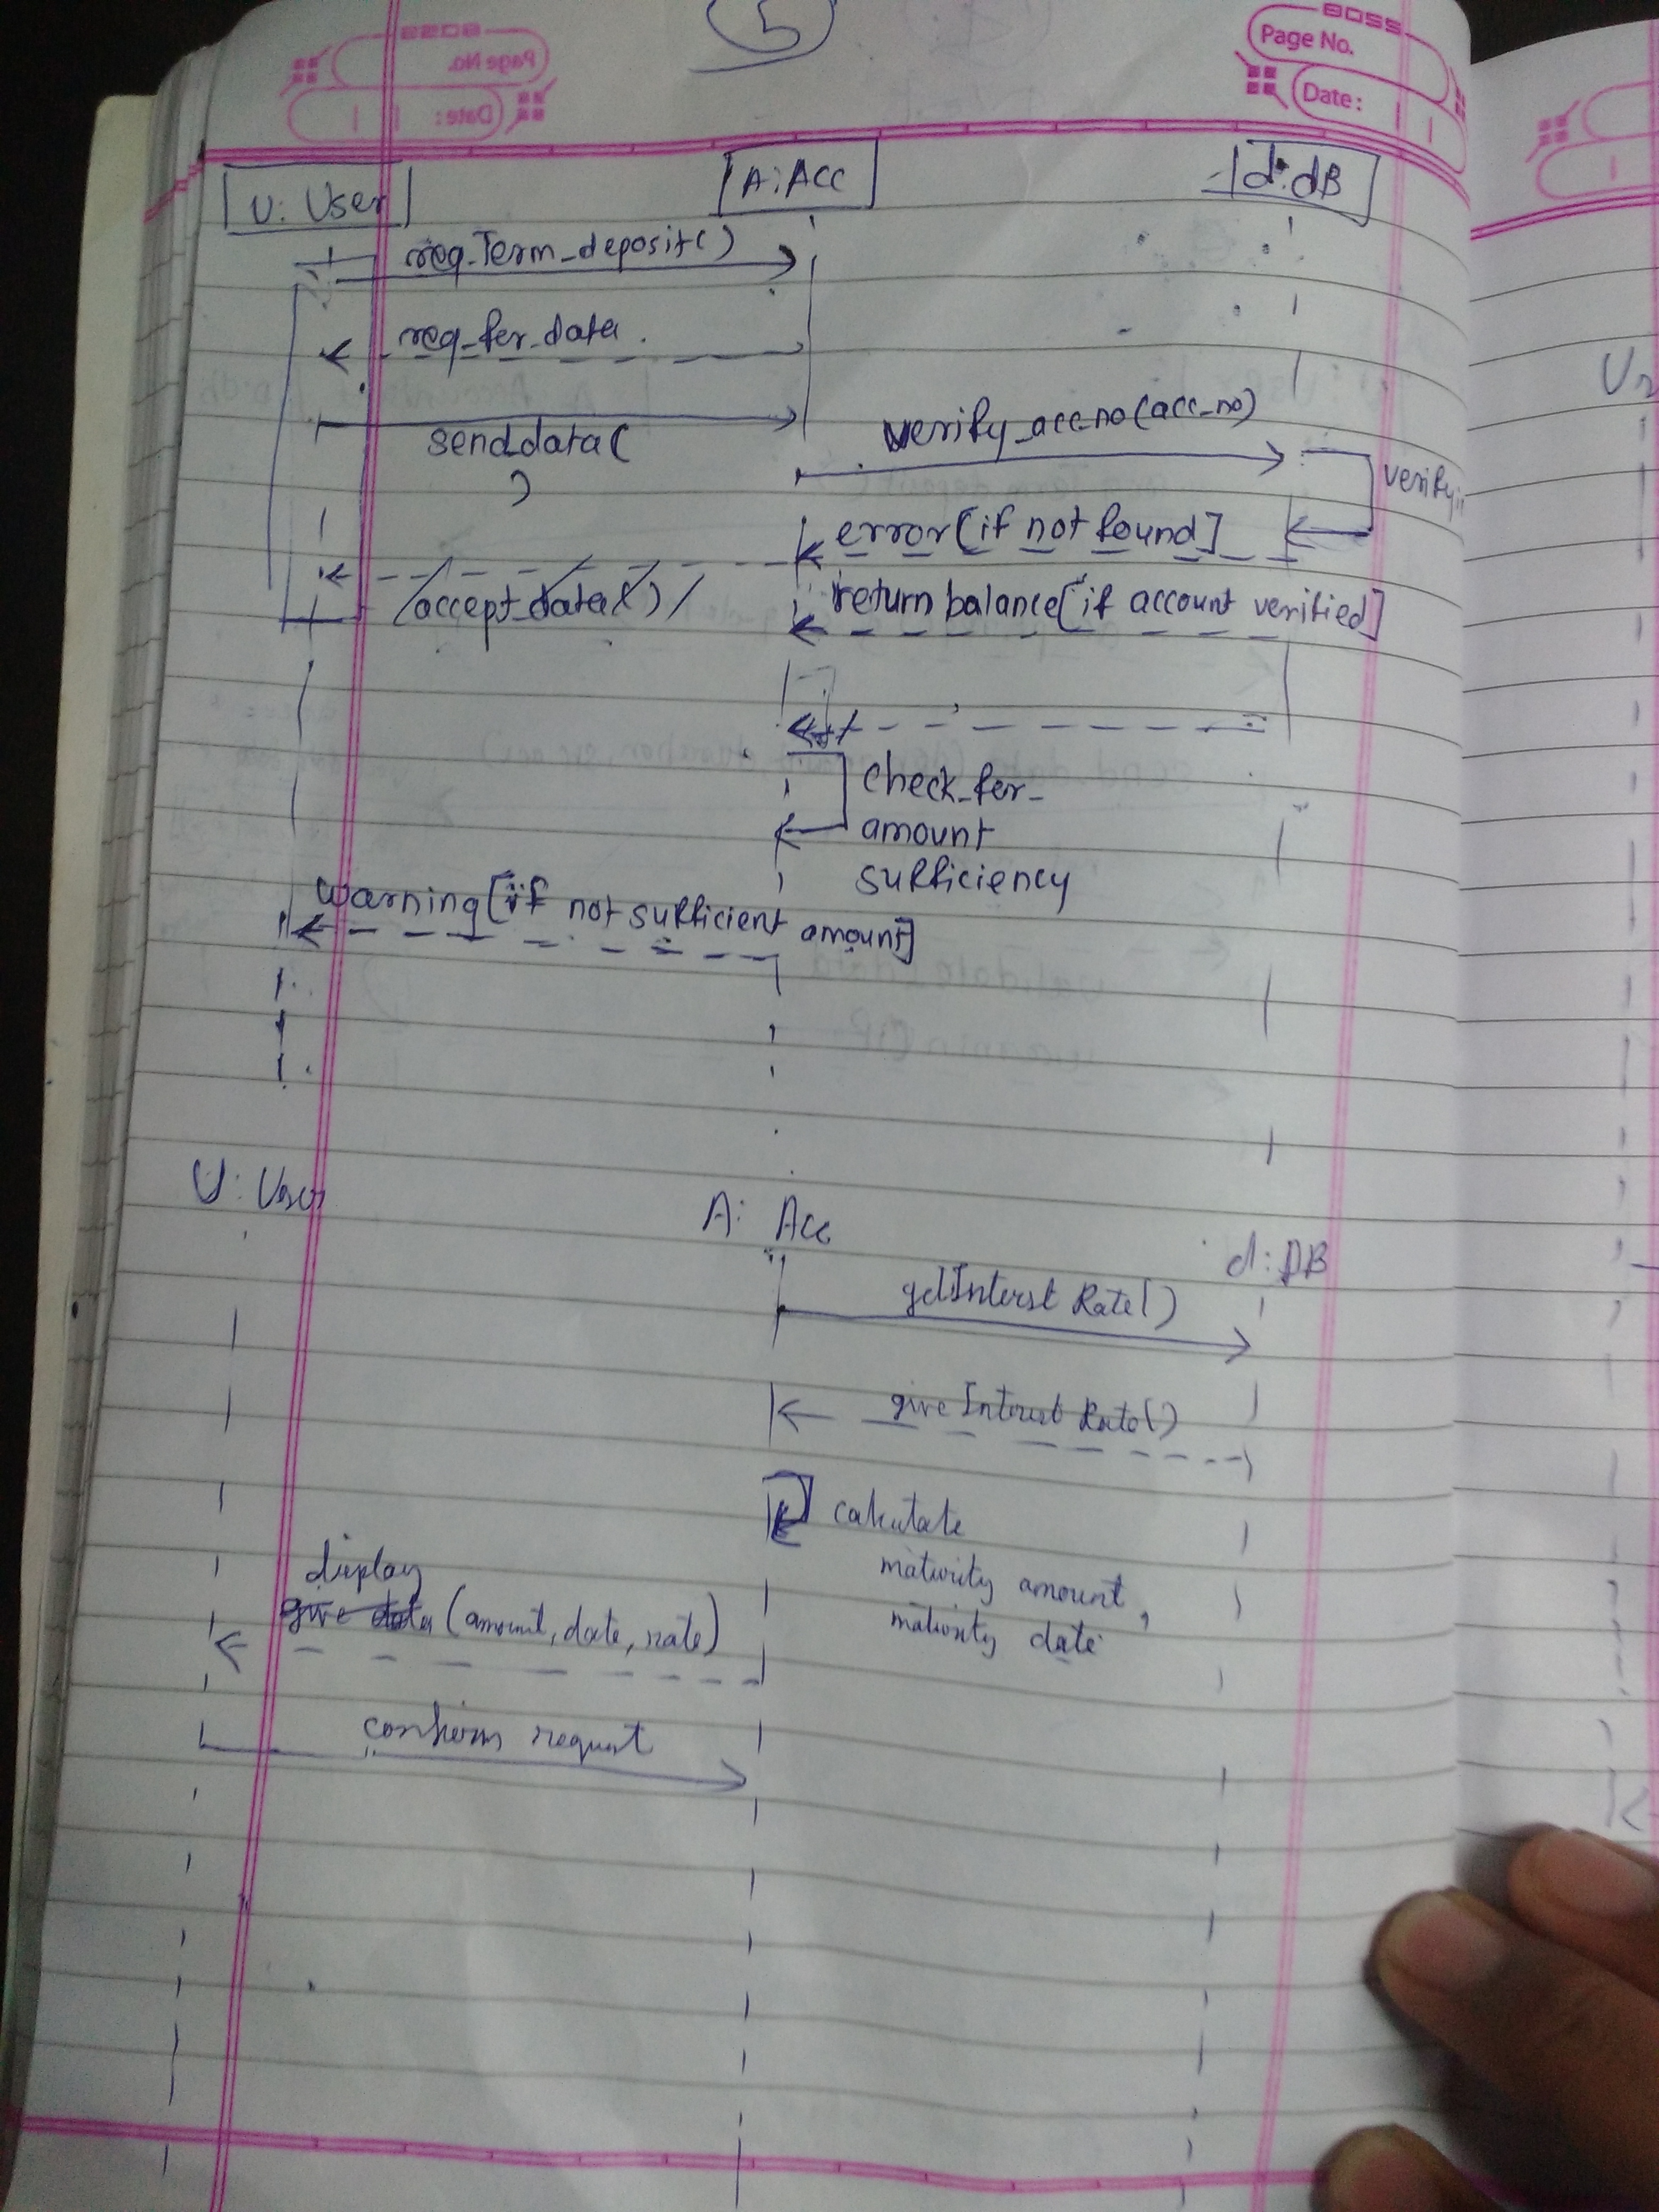 5
BOSS
Page No.
Date:
U: User
A: Acc
d: dB
req_Term_deposit()
req_for_data.
send_data(
)
verify_acc_no(acc_no)
verify
error[if not found]
accept_data()
return balance[if account verified]
check_for_
amount
sufficiency
warning[if not sufficient amount]
U: User
A: Acc
d: DB
getInterst Rate()
give Interest Rate()
calculate
maturity amount,
maturity date
display
give data (amount, date, rate)
confirm request